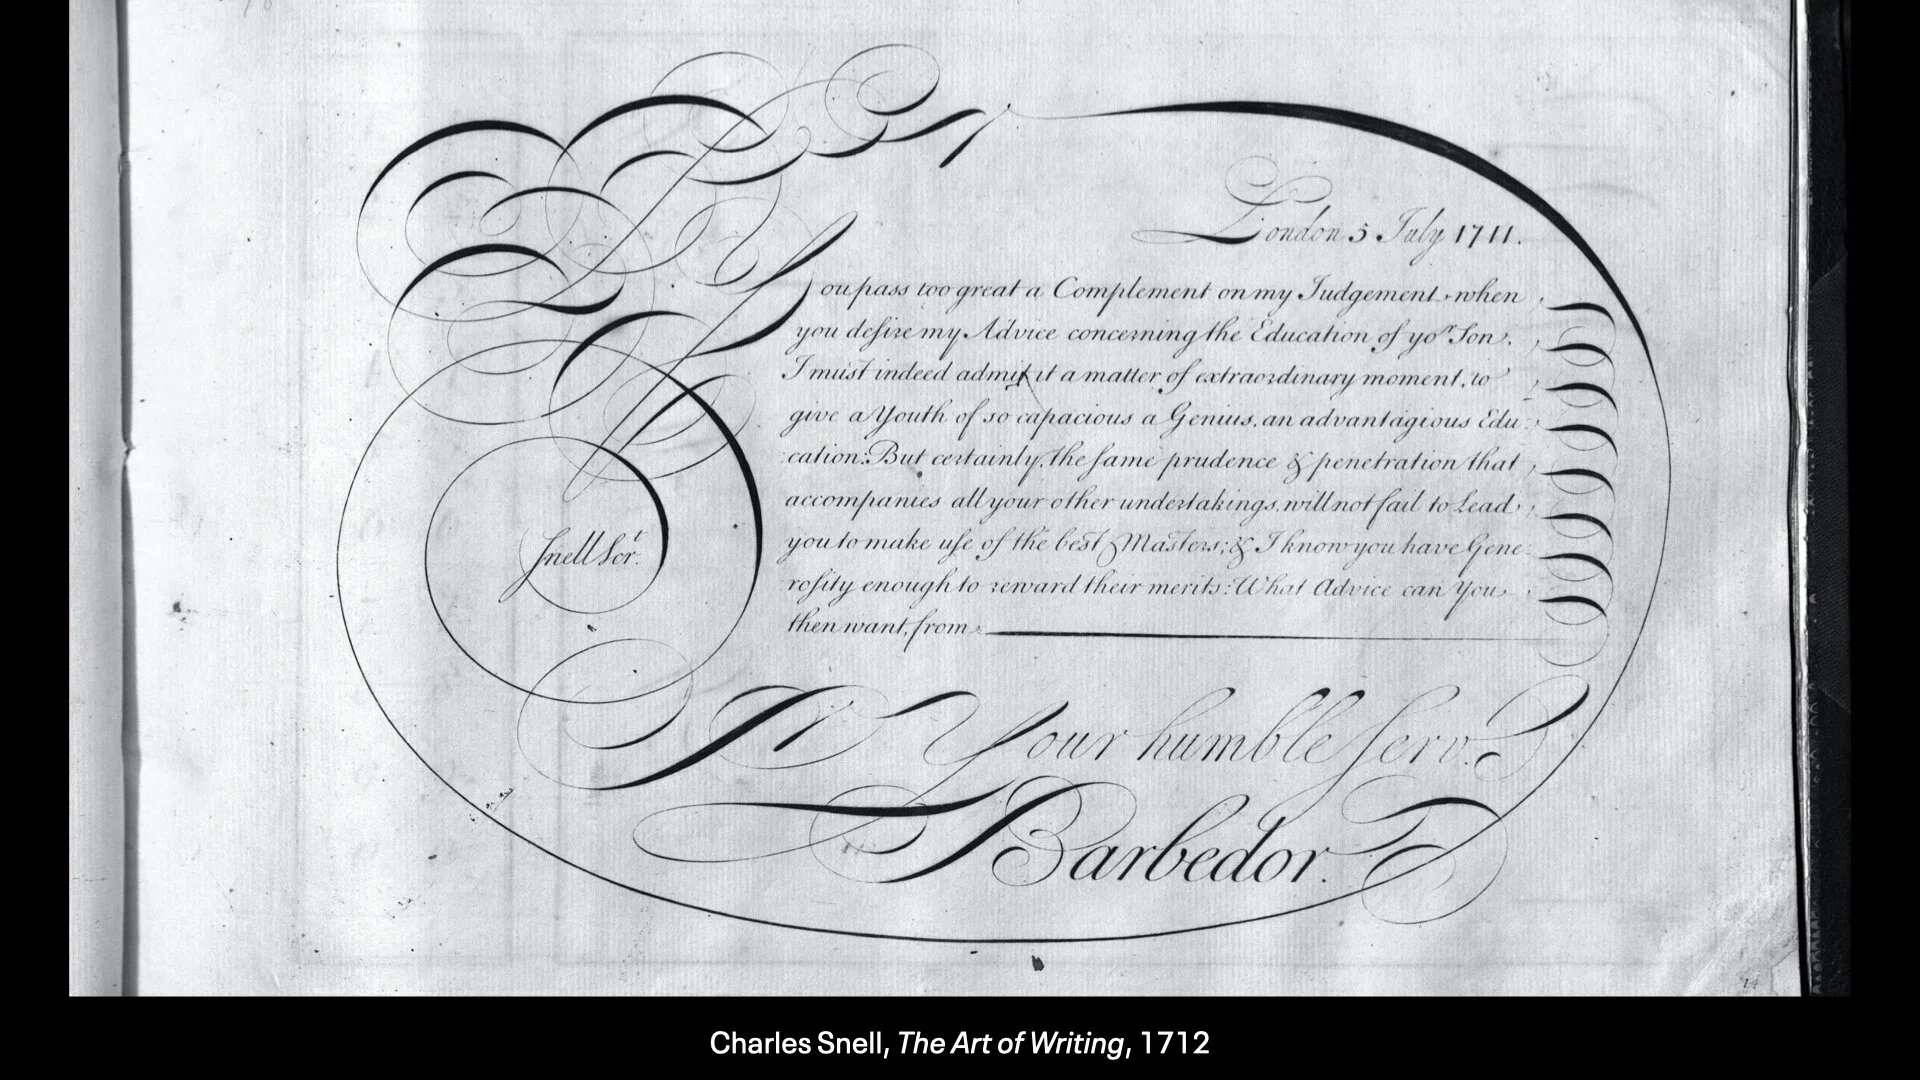 Sr
London 5 July 1711.
You pass too great a Complement on my Judgement, when
you desire my Advice concerning the Education of yor Son.
I must indeed admit it a matter of extraordinary moment, to
give a Youth of so capacious a Genius, an advantagious Edu:
cation: But certainly, the same prudence & penetration that
accompanies all your other undertakings, will not fail to Lead
you to make use of the best Masters; & I know you have Gene:
rosity enough to reward their merits: What Advice can You
then want, from
Snell Scrt.
Your humble Servt.
Barbedor.
14
Charles Snell, The Art of Writing, 1712